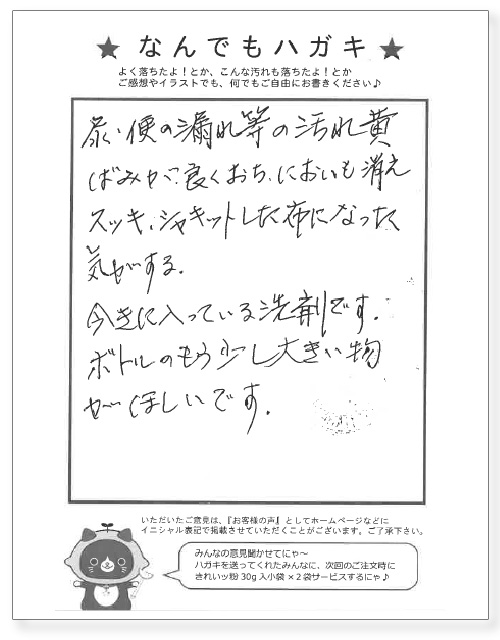 ★ なんでもハガキ ★
よく落ちたよ！とか、こんな汚れも落ちたよ！とか
ご感想やイラストでも、何でもご自由にお書きください♪
尿・便の漏れ等の汚れ黄
ばみが、良くおち、においも消え
スッキ、シャキットした布になった
気がする。
今きに入っている洗剤です。
ボトルのもう少し大きい物
がほしいです。
いただいたご意見は、『お客様の声』としてホームページなどに
イニシャル表記で掲載させていただくことがございます。ご了承下さい。
みんなの意見聞かせてにゃ〜
ハガキを送ってくれたみんなに、次回のご注文時に
きれいッ粉 30g 入小袋 ×２袋サービスするにゃ♪